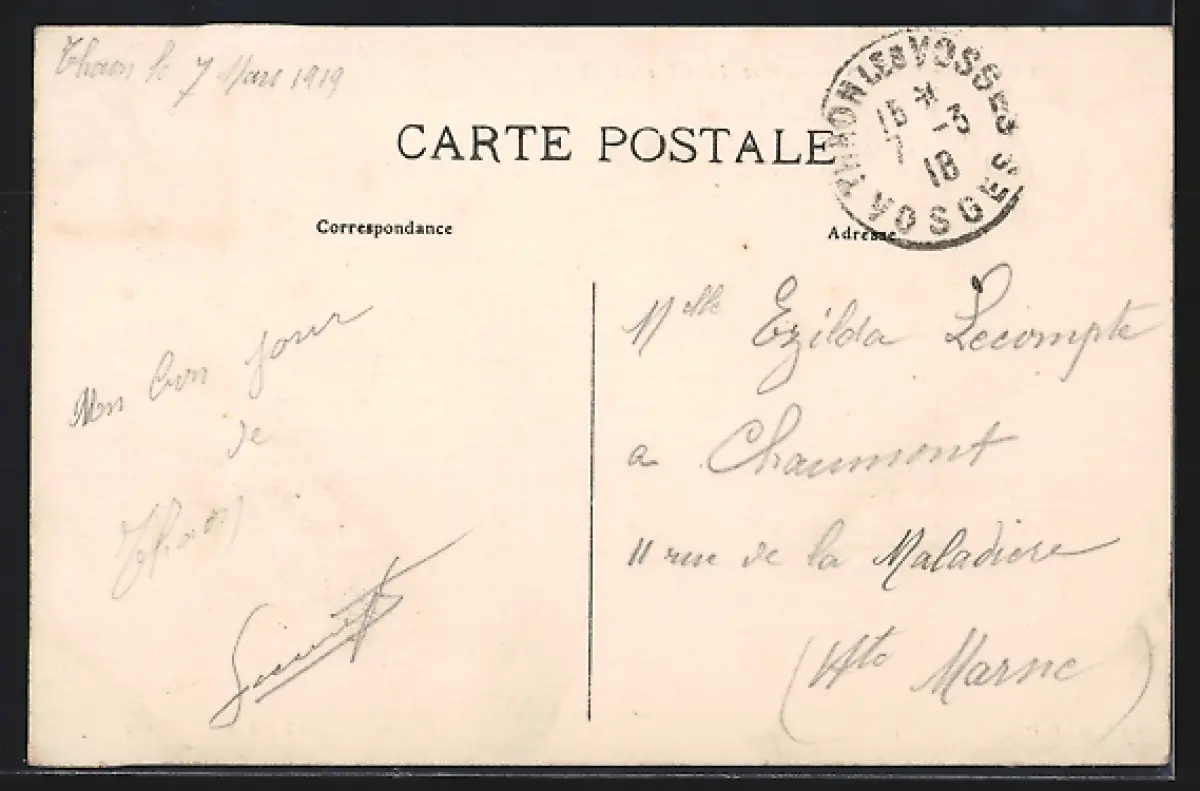 Thaon le 7 Mars 1919
CARTE POSTALE
THAON LES VOSGES
15 *
7 -3
18
VOSGES
Correspondance
Adresse
Mon bon jour
de
Thaon
Melle Ezilda Lecompte
a Chaumont
11 rue de la Maladiere
(Hte Marne)